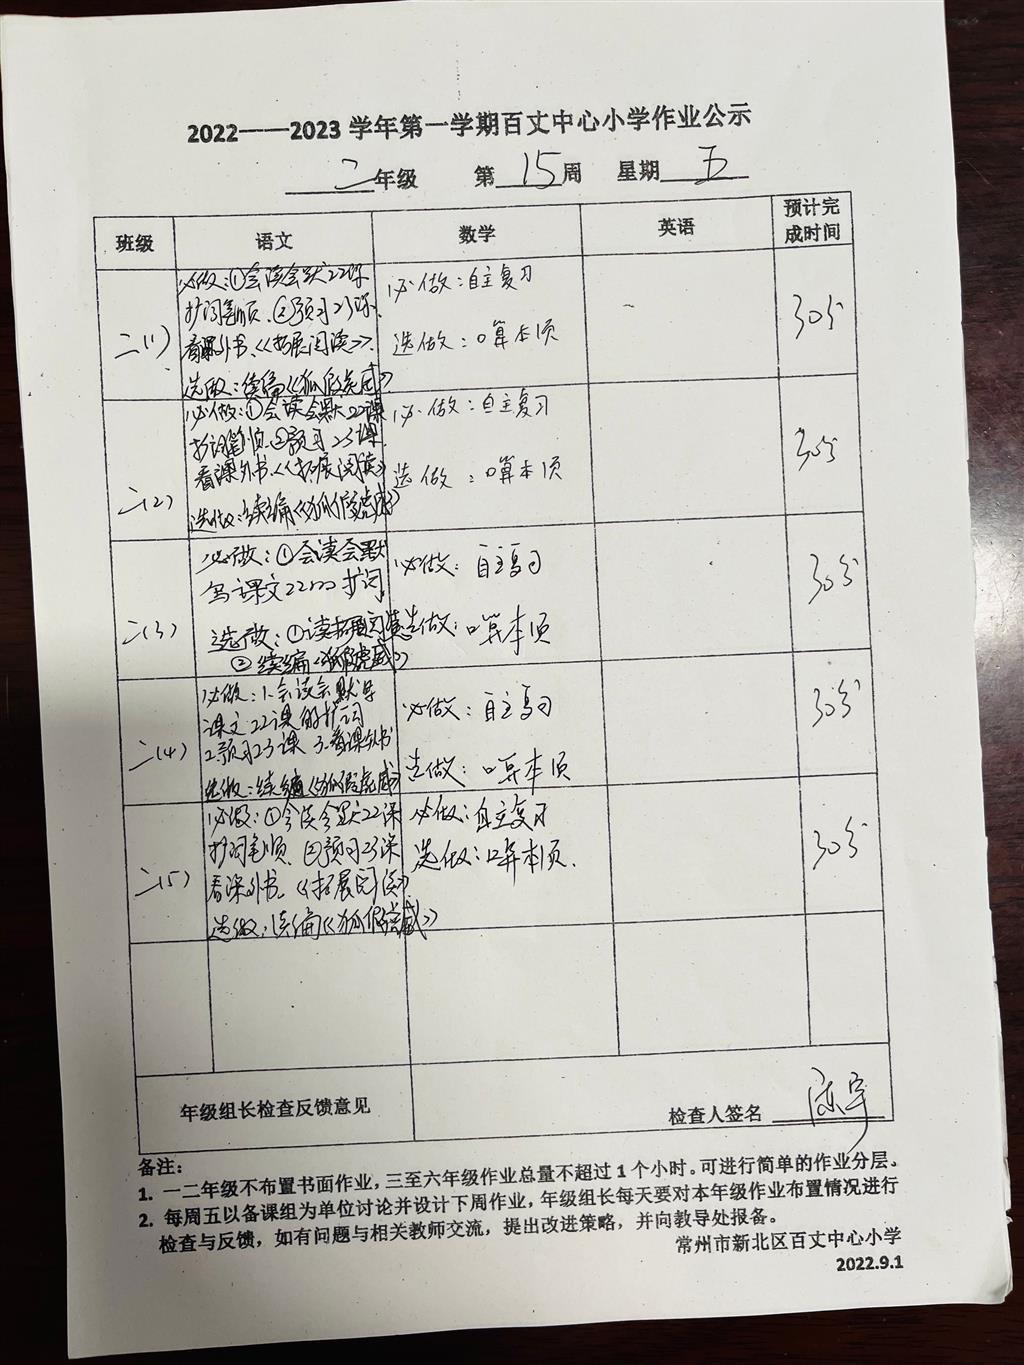 2022——2023 学年第一学期百丈中心小学作业公示
二年级 第15周 星期五
班级 语文 数学 英语 预计完成时间
二(1)
必做:①会读会默22课
扩词笔顺.②预习23课.
看课外书.《拓展阅读》.
选做:续编《狐假虎威》
必做:自主复习
选做:口算本1页
30分
二(2)
必做:①会读会默22课
扩词笔顺.②预习23课
看课外书.《拓展阅读》
选做:续编《狐假虎威》
必做:自主复习
选做:口算本1页
30分
二(3)
必做:①会读会默
写课文22 扩词
选做:①读拓展阅读
②续编《狐假虎威》
必做:自主复习
选做:口算本1页
30分
二(4)
必做:1.会读会默写
课文22课的扩词
2.预习23课 3.看课外书
选做:续编《狐假虎威》
必做:自主复习
选做:口算本1页
30分
二(5)
必做:①会读会默22课
扩词笔顺.②预习23课
看课外书.《拓展阅读》
选做:续编《狐假虎威》
必做:自主复习
选做:口算本1页.
30分
年级组长检查反馈意见
检查人签名 陈宇
备注:
1. 一二年级不布置书面作业,三至六年级作业总量不超过1个小时。可进行简单的作业分层。
2. 每周五以备课组为单位讨论并设计下周作业,年级组长每天要对本年级作业布置情况进行
检查与反馈,如有问题与相关教师交流,提出改进策略,并向教导处报备。
常州市新北区百丈中心小学
2022.9.1